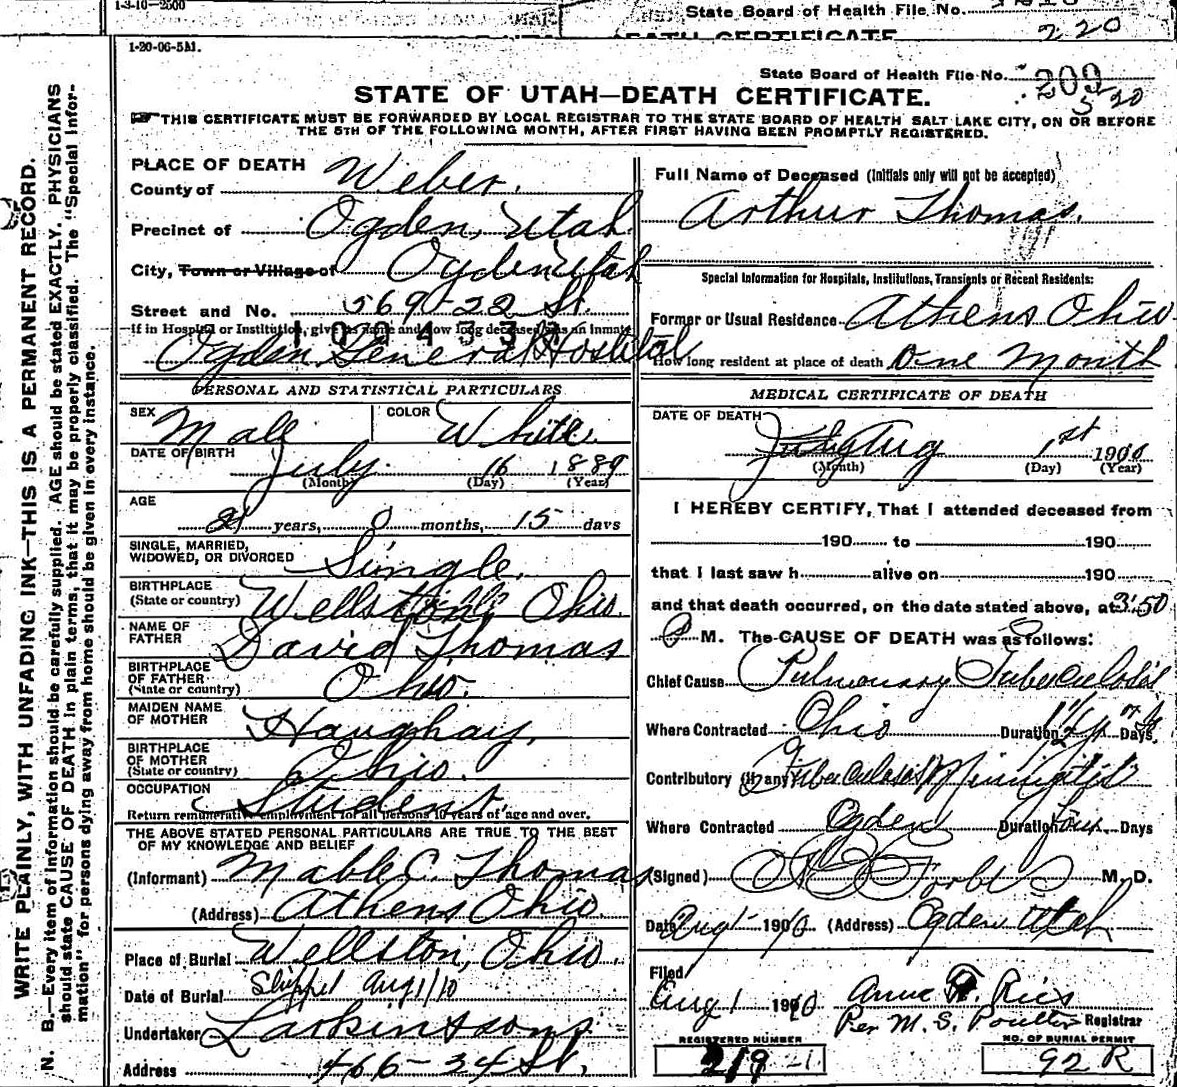 1-3-10-2500
State Board of Health File No.
DEATH CERTIFICATE
220
1-20-06-5M.
State Board of Health File No. 209
520
STATE OF UTAH—DEATH CERTIFICATE.
THIS CERTIFICATE MUST BE FORWARDED BY LOCAL REGISTRAR TO THE STATE BOARD OF HEALTH SALT LAKE CITY, ON OR BEFORE
THE 5TH OF THE FOLLOWING MONTH, AFTER FIRST HAVING BEEN PROMPTLY REGISTERED.
WRITE PLAINLY, WITH UNFADING INK—THIS IS A PERMANENT RECORD.
N. B.—Every item of information should be carefully supplied. AGE should be stated EXACTLY. PHYSICIANS
should state CAUSE OF DEATH in plain terms, that it may be properly classified. The "Special Infor-
mation" for persons dying away from home should be given in every instance.
PLACE OF DEATH
County of Weber.
Precinct of Ogden, Utah
City, Town or Village of Ogden Utah
Street and No. 569-22 St.
If in Hospital or Institution, give its name and how long deceased was an inmate
Ogden General Hospital
PERSONAL AND STATISTICAL PARTICULARS
SEX Male COLOR White.
DATE OF BIRTH July 16 1889
(Month) (Day) (Year)
AGE
21 years, 0 months, 15 days
SINGLE, MARRIED,
WIDOWED, OR DIVORCED Single.
BIRTHPLACE
(State or country) Wellston Ohio.
NAME OF
FATHER David Thomas
BIRTHPLACE
OF FATHER
(State or country) Ohio.
MAIDEN NAME
OF MOTHER Haughay.
BIRTHPLACE
OF MOTHER
(State or country) Ohio.
OCCUPATION Student.
Return remunerative employment for all persons 10 years of age and over.
THE ABOVE STATED PERSONAL PARTICULARS ARE TRUE TO THE BEST
OF MY KNOWLEDGE AND BELIEF
(Informant) Mable C. Thomas
(Address) Athens Ohio.
Place of Burial Wellston, Ohio.
Date of Burial Shipped Aug 1/10
Undertaker Larkin & Sons
Address 466-24 St.
Full Name of Deceased (Initials only will not be accepted)
Arthur Thomas.
Special Information for Hospitals, Institutions, Transients or Recent Residents:
Former or Usual Residence Athens Ohio
How long resident at place of death One Month
MEDICAL CERTIFICATE OF DEATH
DATE OF DEATH
July Aug 1st 1910
(Month) (Day) (Year)
I HEREBY CERTIFY, That I attended deceased from
190 to 190
that I last saw h alive on 190
and that death occurred, on the date stated above, at 3:50
M. The CAUSE OF DEATH was as follows:
Chief Cause Pulmonary Tuberculosis
Where Contracted Ohio Duration Days.
Contributory (if any) Tuberculosis Miningitis
Where Contracted Ogden Duration four Days
(Signed) Forbes M. D.
Date Aug 1 1910 (Address) Ogden Utah
Filed
Aug 1 1910 Anna Ries
Per M. S. Poulter Registrar
REGISTERED NUMBER
219
NO. OF BURIAL PERMIT
92 R